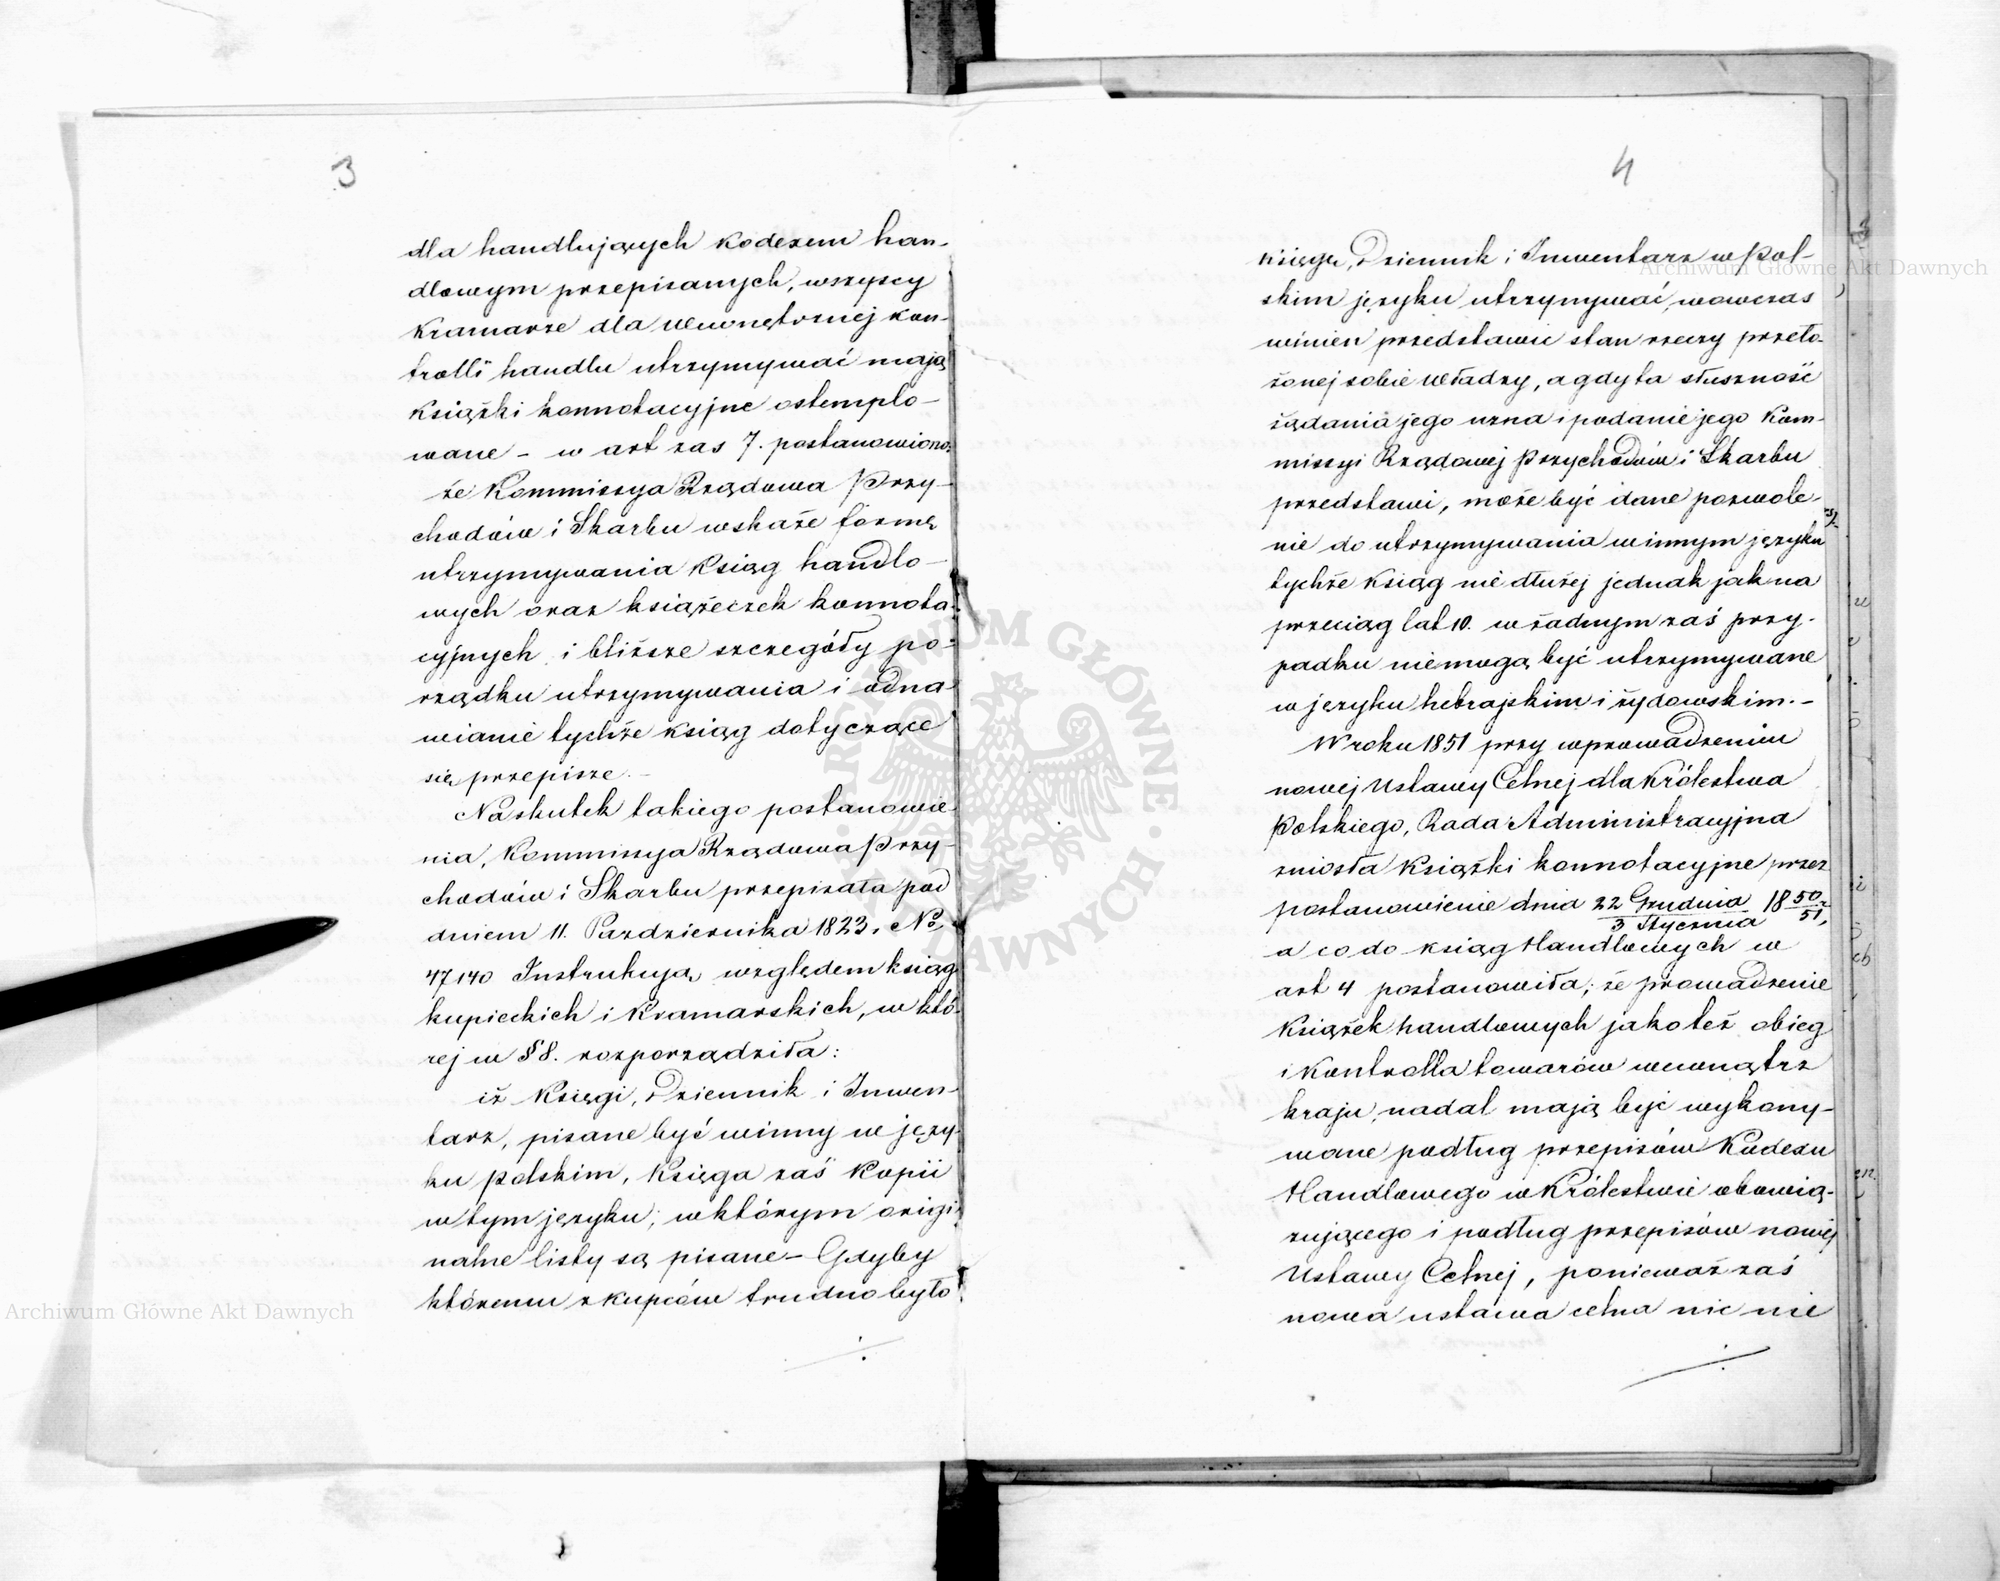 3
dla handlujących kodexem han-
dlowym przepisanych, wszyscy
Kramarze dla wewnętrznej kon-
trolli handlu utrzymywać mają
Książki konnotacyjne ostemplo-
wane – w art zas 7. postanowiono:
że Kommissya Rządowa Przy-
chodów i Skarbu wskaże formę
utrzymywania Ksiąg handlo-
wych oraz książeczek konnota-
cyjnych i bliższe szczegóły po-
rządku utrzymywania i odna-
wianie tychże ksiąg dotyczące
się przepisze. –
Na skutek takiego postanowie-
nia, Kommissya Rządowa Przy-
chodów i Skarbu przepisała pod
dniem 11. Pazdziernika 1823. No.
47140 Instrukcyą względem ksiąg
kupieckich i Kramarskich, w któ-
rej w § 8. rozporządziła:
iż Księgi, Dziennik i Inwen-
tarz, pisane być winny w języ-
ku polskim, Księga zaś Kopii
w tym języku, w którym origi-
nalne listy są pisane – Gdyby
któremu z kupców trudno było
4
księgę, Dziennik i Inwentarz w Pol-
skim języku utrzymywać, wowczas
winien przedstawić stan rzeczy przeło-
żonej sobie władzy, a gdy ta słuszność
żądania jego uzna i podanie jego Kom-
missyi Rządowej Przychodów i Skarbu
przedstawi, może być dane pozwole-
nie do utrzymywania w innym języku
tychże Ksiąg nie dłużej jednak jak na
przeciąg lat 10. w żadnym zaś przy-
padku nie mogą być utrzymywane
w języku hebrajskim i żydowskim. –
W roku 1851 przy wprowadzeniu
nowej Ustawy Celnej dla Królestwa
Polskiego, Rada Administracyjna
zniosła Książki konnotacyjne przez
postanowienie dnia 22 Grudnia / 3 Stycznia 1850/51,
a co do ksiąg Handlowych w
art 4 postanowiła; że prowadzenie
Książek handlowych jako też obieg
i Kontrolla towarów wewnątrz
kraju, nadal mają być wykony-
wane podług przepisów Kodexu
Handlowego w Królestwie obowią-
zującego i podług przepisów nowej
Ustawy Celnej, ponieważ zaś
nowa ustawa celna nic nie
Archiwum Główne Akt Dawnych
Archiwum Główne Akt Dawnych
ARCHIWUM GŁÓWNE AKT DAWNYCH